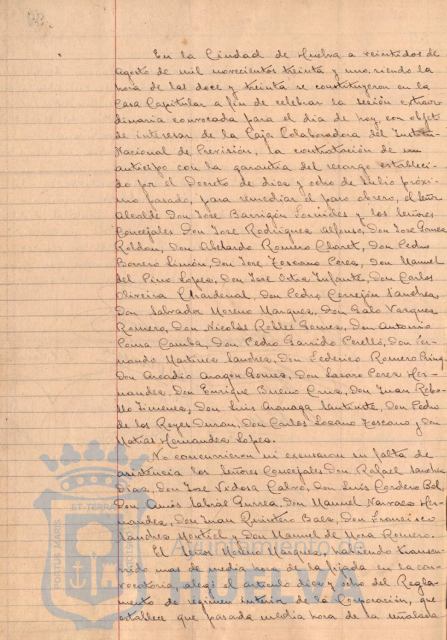 En la Ciudad de Huelva a veintidos de
agosto de mil novecientos treinta y uno, siendo la
hora de las doce y treinta se constituyeron en la
Casa Capitular a fin de celebrar la sesión extraor
dinaria convocada para el dia de hoy, con objeto
de interesar de la Caja Colaboradora del Instituto
Nacional de Previsión, la contratación de un
anticipo con la garantia del recargo estableci-
do por el Decreto de diez y ocho de Julio próxi-
mo pasado, para remediar el paro obrero, el Señor
Alcalde Don Jose Barrigón Fornieles y los Señores
Concejales Don Jose Rodriguez Alfonso, Don Jose Gomez
Roldan, Don Abelardo Romero Claret, Don Pedro
Borrero Limón, Don Jose Toscano Perea, Don Manuel
del Pino Lopez, Don Jose Infante, Don Carlos
Oliveira Chardenal, Don Pedro Cerrejón Sanchez,
Don Salvador Moreno Marquez, Don Galo Vazquez
Romero, Don Nicolás Robles Gomez, Don Antonio
Pousa Camba, Don Pedro Garrido Perelló, Don Fer-
nando Martinez Sanchez, Don Federico Romero
Don Arcadio Aragón Gomez, Don Lazaro Perez Her-
nandez, Don Enrique Bueno Cruz, Don Juan Rebo-
llo Jimenez, Don Luis, Don Pedro
de los Reyes Duran, Don Carlos Lozano Toscano y Don
Matias Hernandez Lopez.
No concurrieron ni excusaron su falta de
asistencia los Señores Concejales Don Rafael Sanchez
Diaz, Don Jose Vedosa Calvo, Don Luis Cordero Bel,
Don Amós Sabrás Gurrea, Don Manuel Navarro Her-
nandez, Don Juan Quintero Baez, Don Francisco
Sanchez Montiel y Don Manuel de Mora Romero.
El señor Moreno Marquez, habiendo transcu-
rrido mas de media hora de la fijada en la con-
vocatoria, alegó el articulo diez y ocho del Regla-
mento de regimen interior de la Corporación, que
establece que pasada media hora de la señalada
PORTUS MARIS
ET TERRAE
Ayuntamiento de
HUELVA